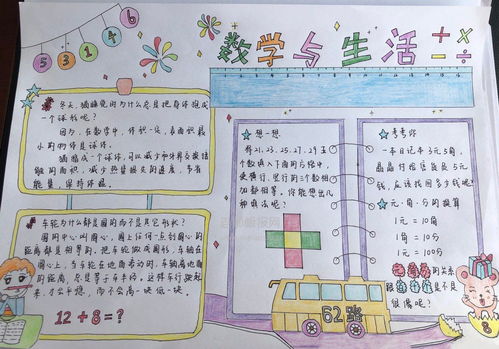 5 3 1 4 6
数学与生活
+ × − ÷
冬天,猫睡觉时为什么总是把身体抱成
一个球形呢?
因为,在数学中,体积一定,表面积最
小的物体是球体。
猫抱成一个球体,可以减少和外界交换接
触的面积,减少热量散失的速度,节省
能量,保持体温。
车轮为什么都是圆的而不是其它形状?
圆的中心叫圆心,圆上任何一点到圆心的
距离都是相等的。把车轮做成圆形,车轴在
圆心上,当车轮在地面滚动时,车轴离地面
的距离,总是等于车半径。这样车行驶起
来,才会平稳,而不会高一块低一块。
12 + 8 = ?
想一想
将21、23、25、27、29五
个数填入下面的方格中,
使横行、竖行的三个数相
加都相等。你能想出几
种填法呢?
62路
考考你
一本日记本3元5角,
晶晶付给店员员5元
钱,应该找回多少钱呢?
元、角、分的换算
1元 = 10角
1角 = 10分
1元 = 100分
的关系
是不是
很像呢?
8